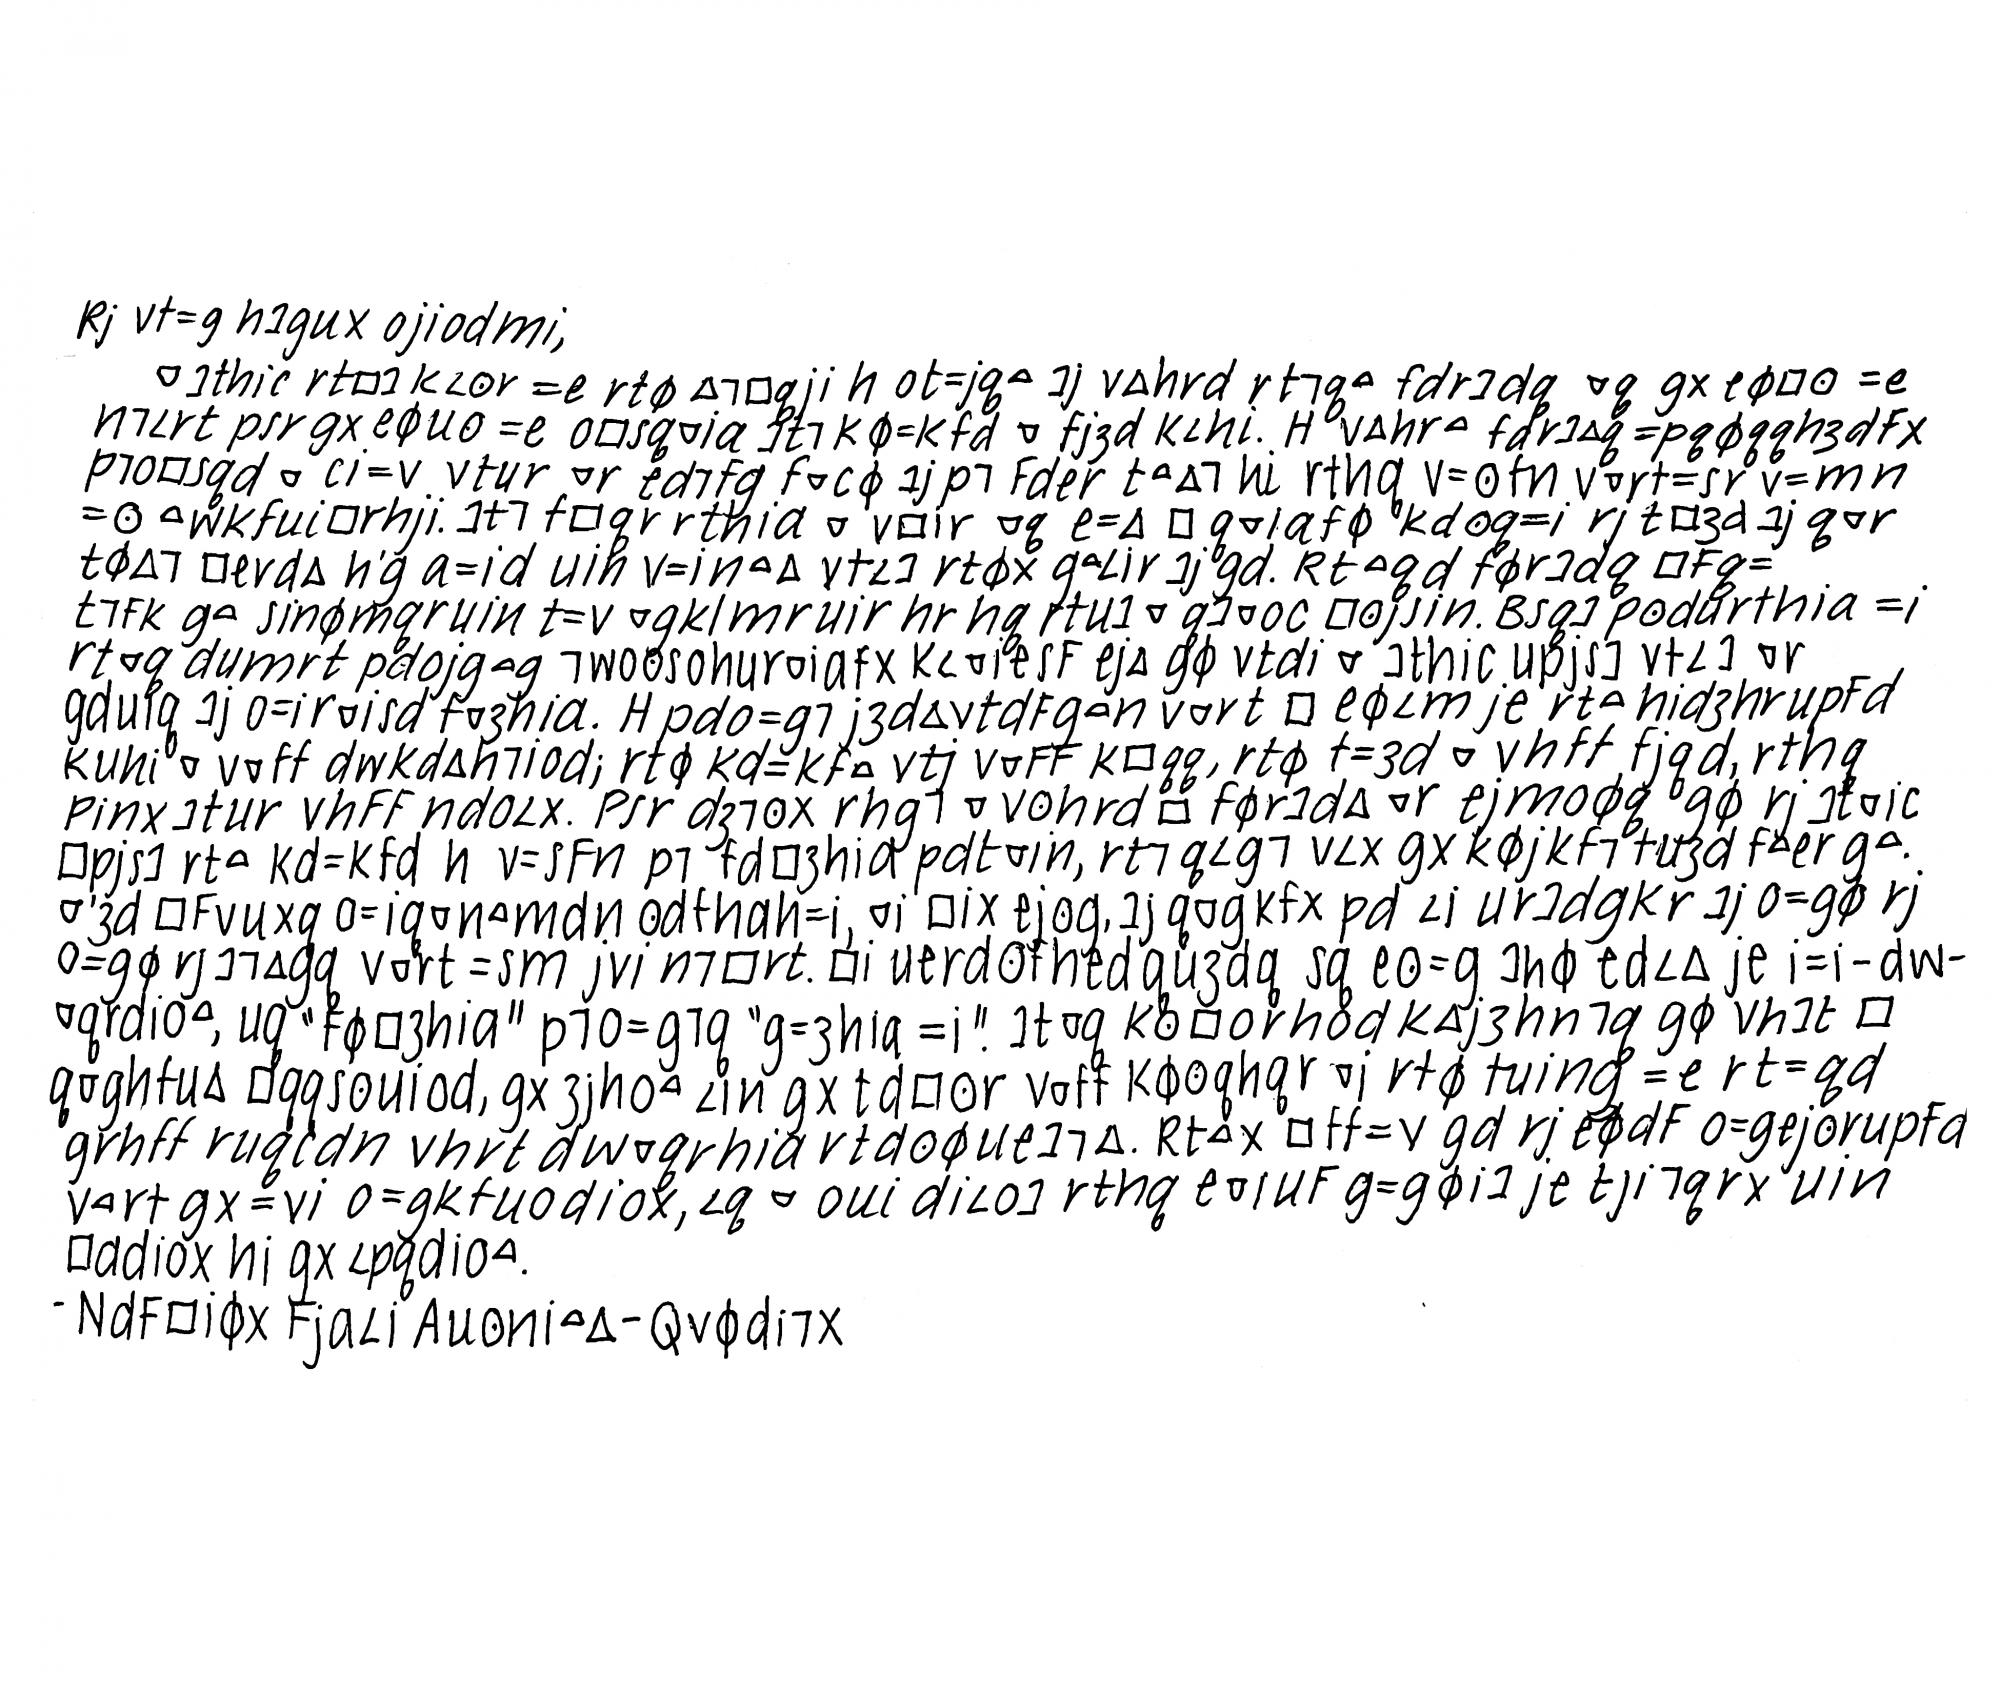 Rj vt=g hʇgux ojiodmi,
▿ ʇthic rt□ʇ k∠⊙r =e rtϕ ∆⁊□qji h ot=jq▵ ʇj v∆hrd rt⁊q▵ fdrʇdq ▿q gx eϕ□⊙ =e
n⁊∠rt psr gx eϕu⊙ =e o□sq▿ia ʇt⁊ kϕ=kfd ▿ fjʒd k∠hi. H v∆hr▵ fdrʇ∆q =pqϕqqhʒdFx
p⁊o□sqd ▿ ci=v vtur ▿r ed⁊fq f▿cϕ ʇj p⁊ Fder t▵∆⁊ hi rthq v=⊙fn v▿rt=sr v=mn
=⊙ ▵wkfui□rhji. ʇt⁊ f□qr rthia ▿ v□ir ▿q e=∆ □ q▿iafϕ kd⊙q=i rj t□ʒd ʇj q▿r
tϕ∆⁊ □erd∆ h'g a=id uih v=in▵∆ vt∠ʇ rtϕx g▵∠ir ʇj gd. Rt▵qd fϕrʇdq □Fq=
t⁊Fk g▵ sinϕmqruin t=v ▿gklmruir hr hq rtuʇ ▿ qʇ▿oc □ojsin. Bsqʇ podurthia =i
rt▿q dumrt pdojg▵g ⁊woosohur▿iafx k∠▿iesF ej∆ gϕ vtdi ▿ ʇthic upjsʇ vt∠ʇ ▿r
gduiq ʇj o=ir▿isd f▿ʒhia. H pdo=g⁊ jʒd∆vtdFg▵n v▿rt □ eϕ∠m je rt▵ hidʒhrupFd
kuhi ▿ v▿ff dwkd∆h⁊iod; rtϕ kd=kf▵ vtj v▿FF k□qq, rtϕ t=ʒd ▿ vhff fjqd, rthq
pinx ʇtur vhFF ndo∠x. Psr dʒ⁊⊙x rhg⁊ ▿ v⊙hrd □ fϕrʇd∆ ▿r ejmoϕq gϕ rj ʇt▿ic
□pjsʇ rt▵ kd=kfd h v=sFn p⁊ fd□ʒhia pdt▿in, rt⁊ q∠g⁊ v∠x gx kϕjkf⁊ tuʒd f▵er g▵.
▿'ʒd □Fvuxq o=iq▿n▵mdn odfhah=i, ▿i □ix ejog, ʇj q▿gkfx pd ∠i urʇdgkr ʇj o=gϕ rj
o=gϕ rj ʇ⁊⁊∆gq v▿rt =sm jvi n⁊□rt. □i uerd⊙fhed quʒdq sq eo=g ʇhϕ ed∠∆ je i=i-dw-
▿qrdio▵, uq "fϕ□ʒhia" p⁊o=g⁊q "g=ʒhia =i". ʇt▿q k⊙□orhod k∆jʒhn⁊q gϕ vhʇt □
q▿ghfu∆ □qqs⊙uiod, gx ʒjho▵ ∠in gx td□⊙r v▿ff kϕ⊙qhqr ▿i rtϕ tuing =e rt=qd
grhff ruqcdn vhrt dw▿qrhia rtd⊙ϕueʇ⁊∆. Rt▵x □ff=v gd rj eϕdF o=gejorupFd
v▵rt gx =vi o=gkfuodiox, ∠q ▿ oui di∠oʇ rthq e▿iuF g=gϕiʇ je tji⁊qrx uin
□ddiox hi gx ∠pqdio▵.
-NdF□iϕx Fja∠i Au⊙ni▵∆-Qvϕdi⁊x